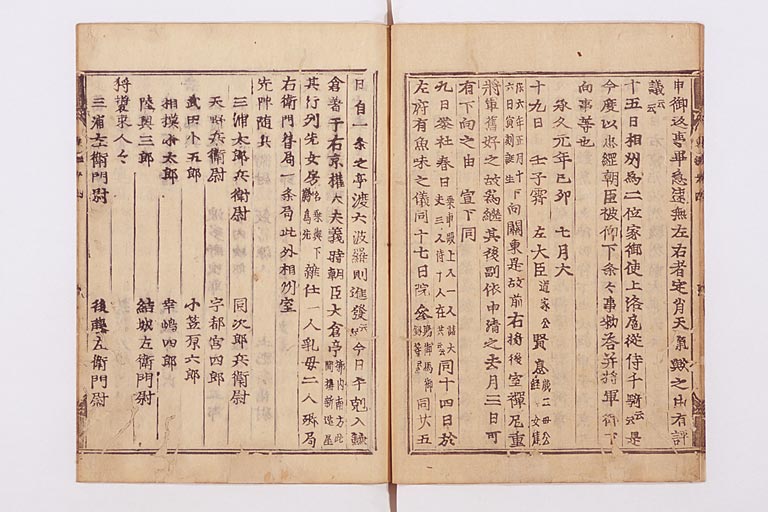 申御返事畢急速無左右者定背天氣歟之由有評
議云云
十五日相州爲二位家御使上洛扈從侍千騎云云是
今度以忠經朝臣被仰下条々事勅答并將軍御下
向事等也
承久元年己卯 七月大
十九日 壬子霽 左大臣道家公賢息歳二母公
六年正月十六日寅刻誕生下向關東是故前右將後室禪尼重
將軍舊好之故爲繼其後嗣依申請之去月三日可
有下向之由 宣下同
九日參社春日 乗車殿上人一人諸大夫三人侍十人在共云云同十四日於
左府有魚味之儀同十七日院參賜御馬御劔等同廿五
日自一条之亭渡六波羅則進發云云今日午剋入鎌
倉着于右京權大夫義時朝臣大倉亭郭内南方此間搆新造屋
其行列先女房各乗輿下臈爲先雜仕一人乳母二人夘局
右衛門督局一条局此外相州室
先陣隨兵
三浦太郎兵衛尉 同次郎兵衛尉
天野兵衛尉 宇都宮四郎
武田小五郎 小笠原六郎
相模小太郎 幸嶋四郎
陸奥三郎 結城左衛門尉
狩裝束人々
三浦左衛門尉 後藤左衛門尉